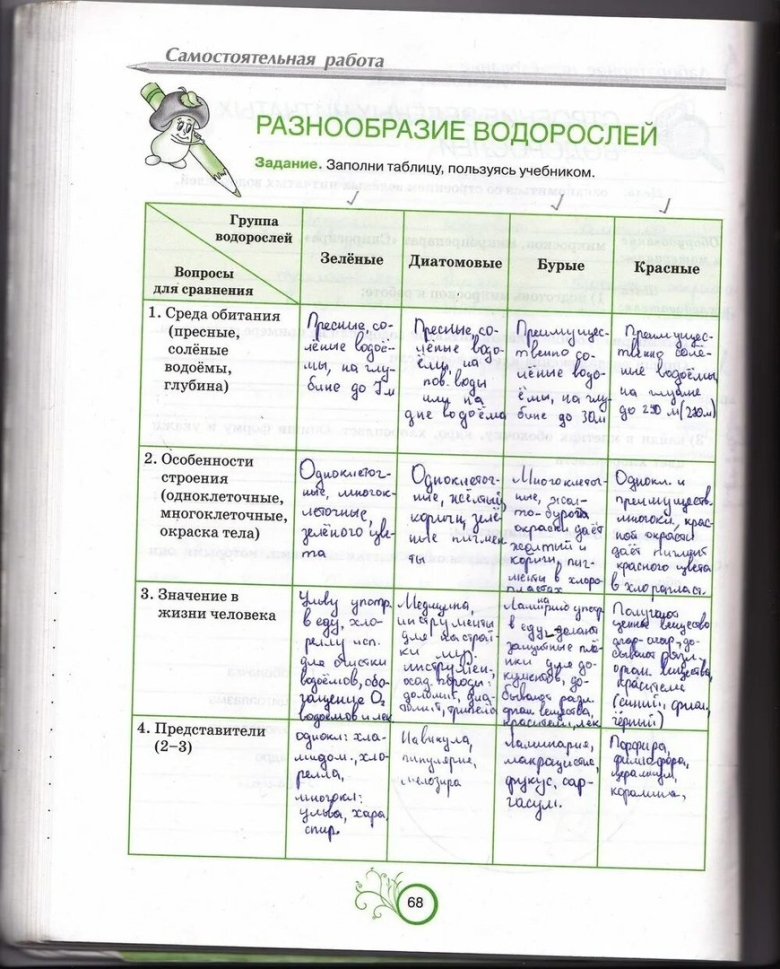 Самостоятельная работа
РАЗНООБРАЗИЕ ВОДОРОСЛЕЙ
Задание. Заполни таблицу, пользуясь учебником.
Группа
водорослей
Вопросы
для сравнения
Зелёные
Диатомовые
Бурые
Красные
1. Среда обитания
(пресные,
солёные
водоёмы,
глубина)
Пресные, со-
лёные водоё-
мы, на глу-
бине до 7м
Пресные, со-
лёные водо-
ёмы, на
пов. воды
или на
дне водоёма
Преимущес-
твенно со-
лёные водо-
ёмы, на глу-
бине до 30м
Преимущес-
твенно солё-
ные водоёмы,
на глубине
до 250 м
2. Особенности
строения
(одноклеточные,
многоклеточные,
окраска тела)
Одноклеточ-
ные, многок-
леточные,
зелёного цве-
та
Одноклеточ-
ные, жёлтый,
коричн, зелё-
ные пигмен-
ты
Многоклеточ-
ные, жел-
то-бурого
окраски даёт
желтый и
коричн, пиг-
менты в хлоро-
пластах
Однокл. и
преимуществ.
многокл, крас-
ной окраски
даёт пигмент
красного цвета
в хлоропласт.
3. Значение в
жизни человека
Ульву употр.
в еду, хло-
реллу исп.
для очистки
водоёмов, обо-
гащение O₂
водоёмов и лек
Медицина,
инструменты
для настрой-
ки
инструмен,
осад. породы:
доломит, диа-
томит, трепела
Ламинарию употр
в еду, делают
защитные плё-
нки для до-
кументов, до-
бывают разл.
орган. вещества,
красители, лек
Получают
ценное вещество
агар-агар, до-
бывают разл.
орган. вещества,
красители
(синий,
чёрный)
4. Представители
(2–3)
однокл: хла-
мидом., хло-
релла,
многокл:
ульва, хара,
спир.
Навикула,
пинулярия,
мелозира
Ламинария,
макроцистис,
фукус, сар-
гассум.
Порфира,
филлофора,
церамиум,
коралина,
68